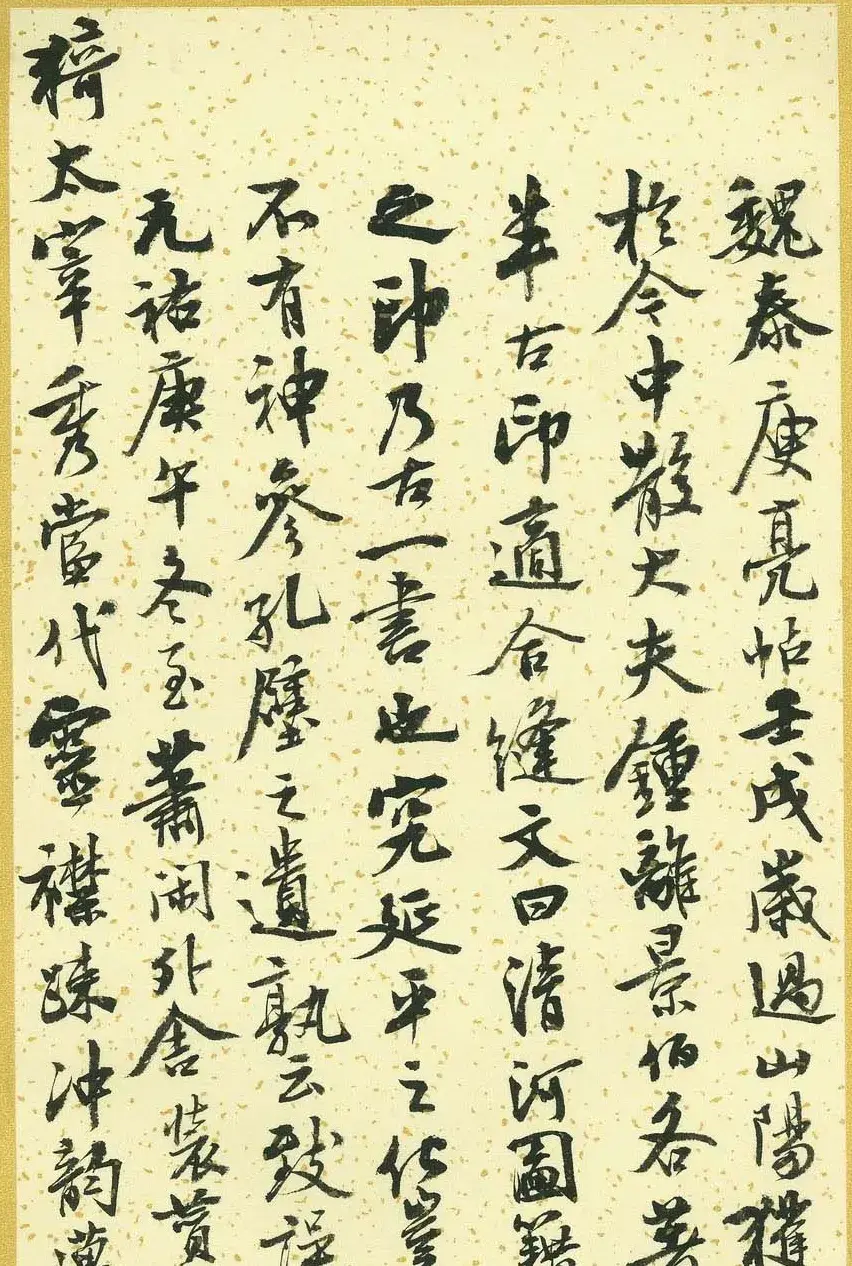 魏泰庾亮帖壬戌歲過山陽獲
於令中散大夫鍾離景伯各著
半古印適合縫文曰清河圖籍
之印乃古一書也究延平之化豈
不有神參孔壁之遺孰云致誤
元祐庚午冬至蕭閑外舍裝
猗太宰秀當代靈襟疎沖韵萬